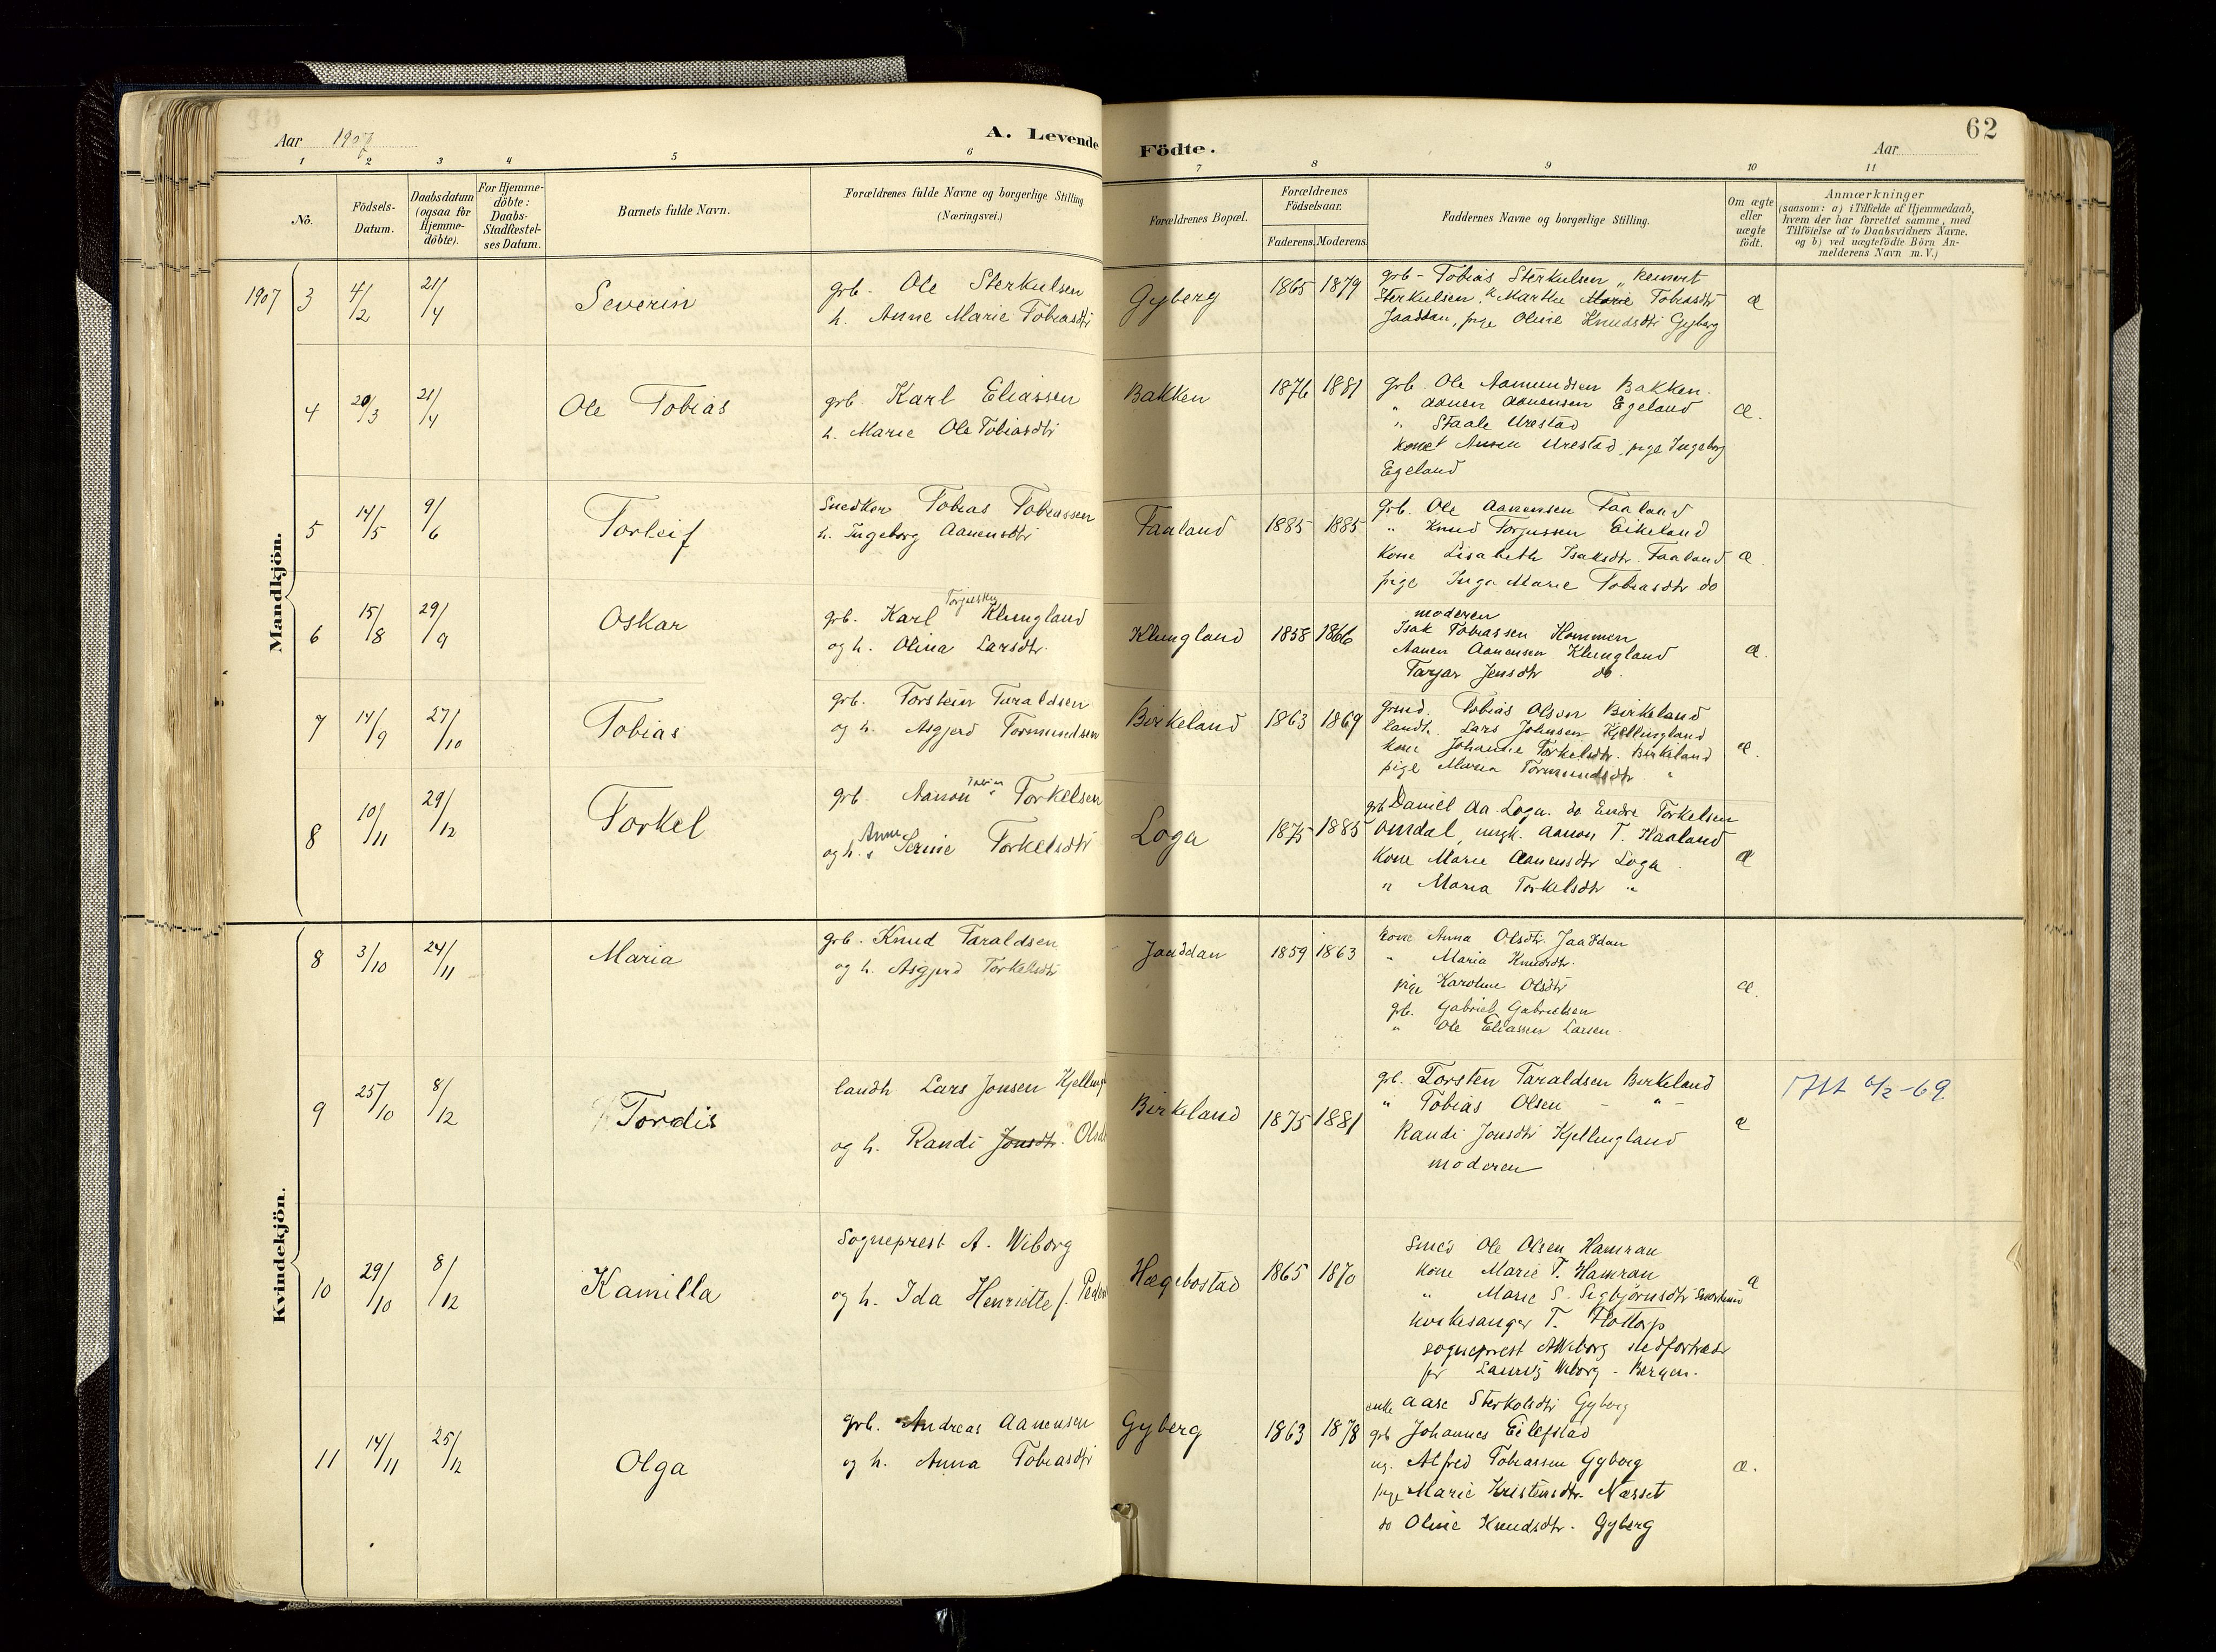 62
Aar 1907
A. Levende Födte.
Aar
1 2 3 4 5 6 7 8 9 10 11
No.
Födsels-
Datum.
Daabsdatum
(ogsaa for
Hjemme-
döbte).
For Hjemme-
döbte:
Daabs-
Stadfæstel-
ses Datum.
Barnets fulde Navn.
Forældrenes fulde Navne og borgerlige Stilling.
(Næringsvei.)
Forældrenes Bopæl.
Forældrenes
Födselsaar.
Faderens. Moderens.
Faddernes Navne og borgerlige Stilling.
Om ægte
eller
uægte
födt.
Anmærkninger
(saasom: a) i Tilfælde af Hjemmedaab,
hvem der har forrettet samme, med
Tilföielse af to Daabsvidners Navne,
og b) ved uægtefödte Börn An-
melderens Navn m.V.)
Mandkjön.
1907 3 4/2 21/4 Severin
grb. Ole Sterkulsen
h. Anne Marie Tobiasdtr
Gyberg 1865 1879
grb - Tobias Sterkulsen
Sterkulsen, k Marthe Marie Tobiasdtr
Jaaddan, pige Oline Knudsdtr Gyberg
æ
4 20/3 21/4 Ole Tobias
grb Karl Eliassen
h. Marie Ole Tobiasdtr
Bakken 1876 1881
grb. Ole Aamundsen Bakken.
" Aanen Aanensen Egeland
" Staale Urestad
Urestad, pige Ingeborg
Egeland
æ.
5 14/5 9/6 Torleif
Snedker Tobias Tobiassen
h. Ingeborg Aanensdtr
Faaland 1885 1885
grb. Ole Aanensen Faaland
" Knud Torjussen Eikeland
Kone Lisabeth Isaksdtr. Faaland
pige Inga Marie Tobiasdtr do
æ.
6 15/8 29/9 Oskar
Torjussen
grb. Karl Klungland
og h. Olina Larsdtr.
Klungland 1858 1866
moderen
Isak Tobiassen Hommen
Aanen Aanensen Klungland
Tarjar Jensdtr do.
æ.
7 14/9 27/10 Tobias
grb. Torstein Taraldsen
og h. Asgjerd Tormundsen
Birkeland 1863 1869
Tobias Olsen Birkeland
landh. Lars Johnsen Kjellingland
kone Johanne Torkelsdtr. Birkeland
pige Maria Tormundsdtr "
æ.
8 10/11 29/12 Torkel
grb. Aanon Torkelsen
Anne
og h. Serine Torkelsdtr
Loga 1875 1885
grb Daniel Aa. Loga. do Endre Torkelsen
Omdal, ungk. Aanon T. Haaland
Kone Marie Aanensdtr Loga
" Maria Torkelsdtr "
æ
Kvindekjön.
8 3/10 24/11 Maria
grb. Knud Taraldsen
og h. Asgjerd Torkelsdtr
Jaaddan 1859 1863
kone Anna Olsdtr. Jaaddan
" Maria Knudsdtr.
pige Karoline Olsdtr
grb. Gabriel Gabrielsen
" Ole Eliassen Larsen.
æ.
9 25/10 8/12 Tordis
landh Lars Jonsen Kjelling
og h. Randi Jonsdtr. Olsdtr
Birkeland 1875 1881
grb. Torsten Taraldsen Birkeland
" Tobias Olsen - " -
Randi Jonsdtr Kjellingland
moderen
æ
6/2-69.
10 29/10 8/12 Kamilla
Sogneprest A. Wiborg
og h. Ida Henriette f.
Hægebostad 1865 1870
Smed Ole Olsen Hamran
kone Marie T. Hamran
" Marie S. Sigbjørnsdtr
kirkesanger T. Flottorp
sogneprest AWiborg stedfortræder
for Lauritz Wiborg - Bergen.
æ
11 14/11 25/12 Olga
grb. Andreas Aanensen
og h. Anna Tobiasdtr
Gyberg 1863 1878
enke Aase Sterkolsdtr Gyberg
grb Johannes Eilefstad
ug. Alfred Tobiassen Gyberg
pige Marie Kristensdtr. Næsset
do Oline Knudsdtr. Gyberg
æ.